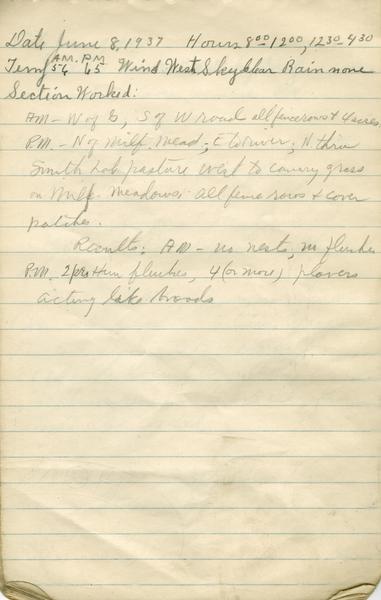 Date June 8, 1937 Hours 8:00 12:00, 12:30-4:30
A.M. P.M.
Temp 56 65 Wind West Sky clear Rain none
Section Worked:
AM - W of G, S of W road all fencerows + 4 acres
PM. - N of Milf. Mead; E to river; N thru
Smith Lob pasture West to canary grass
on Milf. Meadows. All fence rows + cover
patches.
Results: AM - no nests, no flushes
P.M. 2 prs Hun flushes, 4 (or more) plovers
acting like broods